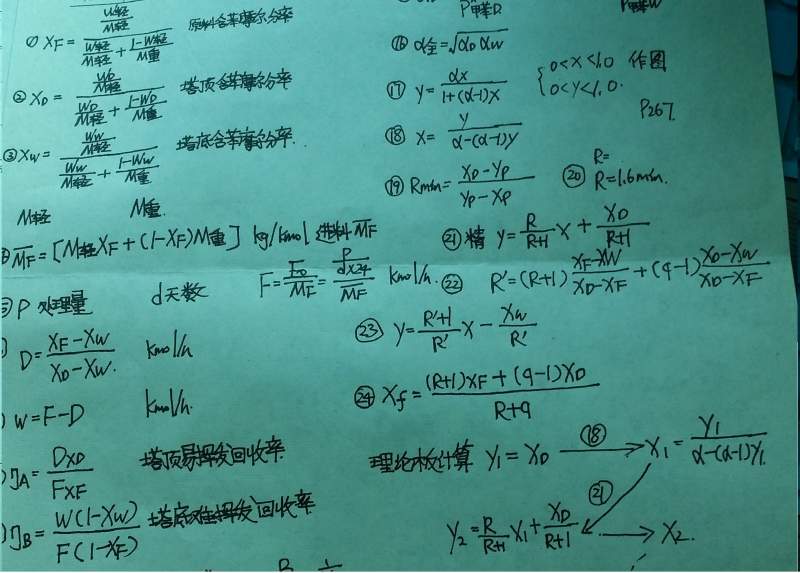 ① X_F = (W轻/M轻) / (W轻/M轻 + (1-W轻)/M重) 原料含苯摩尔分率
② X_D = (W_D/M轻) / (W_D/M轻 + (1-W_D)/M重) 塔顶含苯摩尔分率
③ X_W = (W_W/M轻) / (W_W/M轻 + (1-W_W)/M重) 塔底含苯摩尔分率.
M轻 M重
M̄_F = [M轻X_F + (1-X_F)M重] kg/kmol 进料 M̄_F
P 处理量 d天数 F = F_D/M̄_F = (P/(d×24))/M̄_F kmol/h.
D = (X_F - X_W)/(X_D - X_W) kmol/h
W = F - D kmol/h.
η_A = DX_D/FX_F 塔顶易挥发回收率
η_B = W(1-X_W)/F(1-X_F) 塔底难挥发回收率
P甲苯D P甲苯W
⑯ α全 = √(α_D α_W)
⑰ y = αx/(1+(α-1)x) { 0<x<1.0 作图
0<y<1.0.
P267.
⑱ x = y/(α-(α-1)y)
⑲ Rmin = (X_D - y_P)/(y_P - X_P) ⑳ R=
R=1.6min.
㉑ 精 y = R/(R+1) x + X_D/(R+1)
㉒ R' = (R+1) (X_F-X_W)/(X_D-X_F) + (q-1) (X_D-X_W)/(X_D-X_F)
㉓ y = (R'+1)/R' x - X_W/R'
㉔ X_f = ((R+1)X_F + (q-1)X_D)/(R+q)
理论板计算 y₁ = X_D ⑱ → X₁ = y₁/(α-(α-1)y₁)
㉑
y₂ = R/(R+1) X₁ + X_D/(R+1) → X₂.